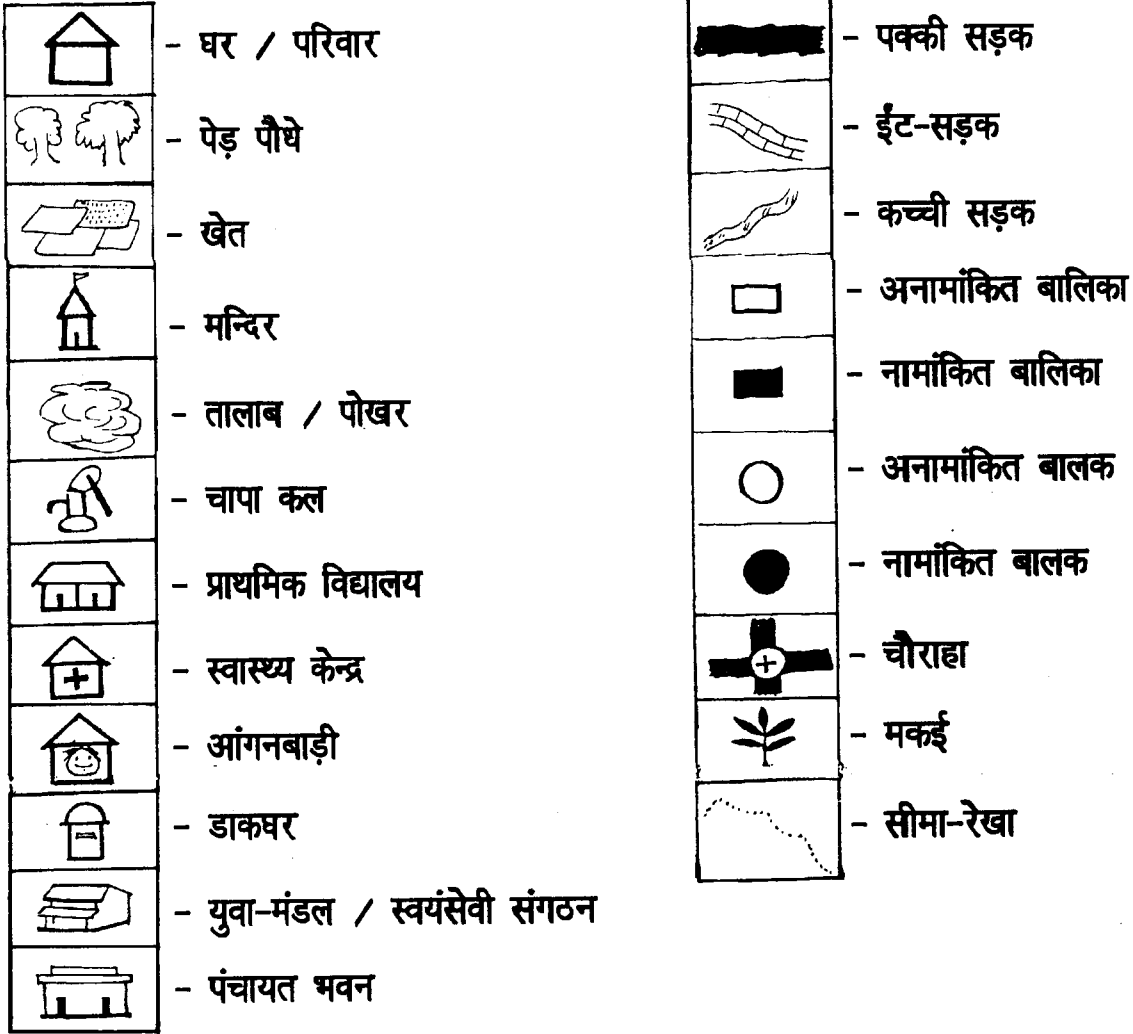 - घर / परिवार
- पेड़ पौधे
- खेत
- मन्दिर
- तालाब / पोखर
- चापा कल
- प्राथमिक विद्यालय
- स्वास्थ्य केन्द्र
- आंगनबाड़ी
- डाकघर
- युवा-मंडल / स्वयंसेवी संगठन
- पंचायत भवन
- पक्की सड़क
- ईंट-सड़क
- कच्ची सड़क
- अनामांकित बालिका
- नामांकित बालिका
- अनामांकित बालक
- नामांकित बालक
- चौराहा
- मकई
- सीमा-रेखा